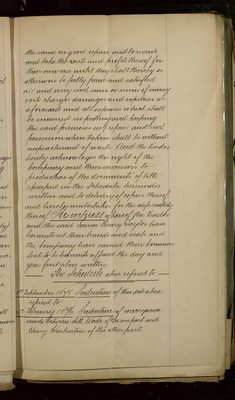 the same in good repair and to receive
and take the rent and profits thereof for
their own use until they shall thereby or
otherwise be fully paid and satisfied
all and every such sum or sums of money
costs charges damages and expenses as
aforesaid and all expenses which shall
be incurred in putting and keeping
the said premises in repair and such
possession when taken shall be without
impeachment of waste And the Vendor
hereby acknowledges the right of the
Company and their successors to
production of the documents of title
specified in the Schedule hereunder
written and to delivery of copies thereof
and hereby undertakes for the safe custody
thereof In witness whereof the Vendor
and the said James Henry Taylor have
hereunto set their hands and seals and
the Company have caused their common
Seal to be hereunto affixed the day and
year first above written
The Schedule above referred to
September 1875 Indenture of this date above
referred to
February 1876 Indenture of conveyance
made between of the one part and
Henry of the other part.